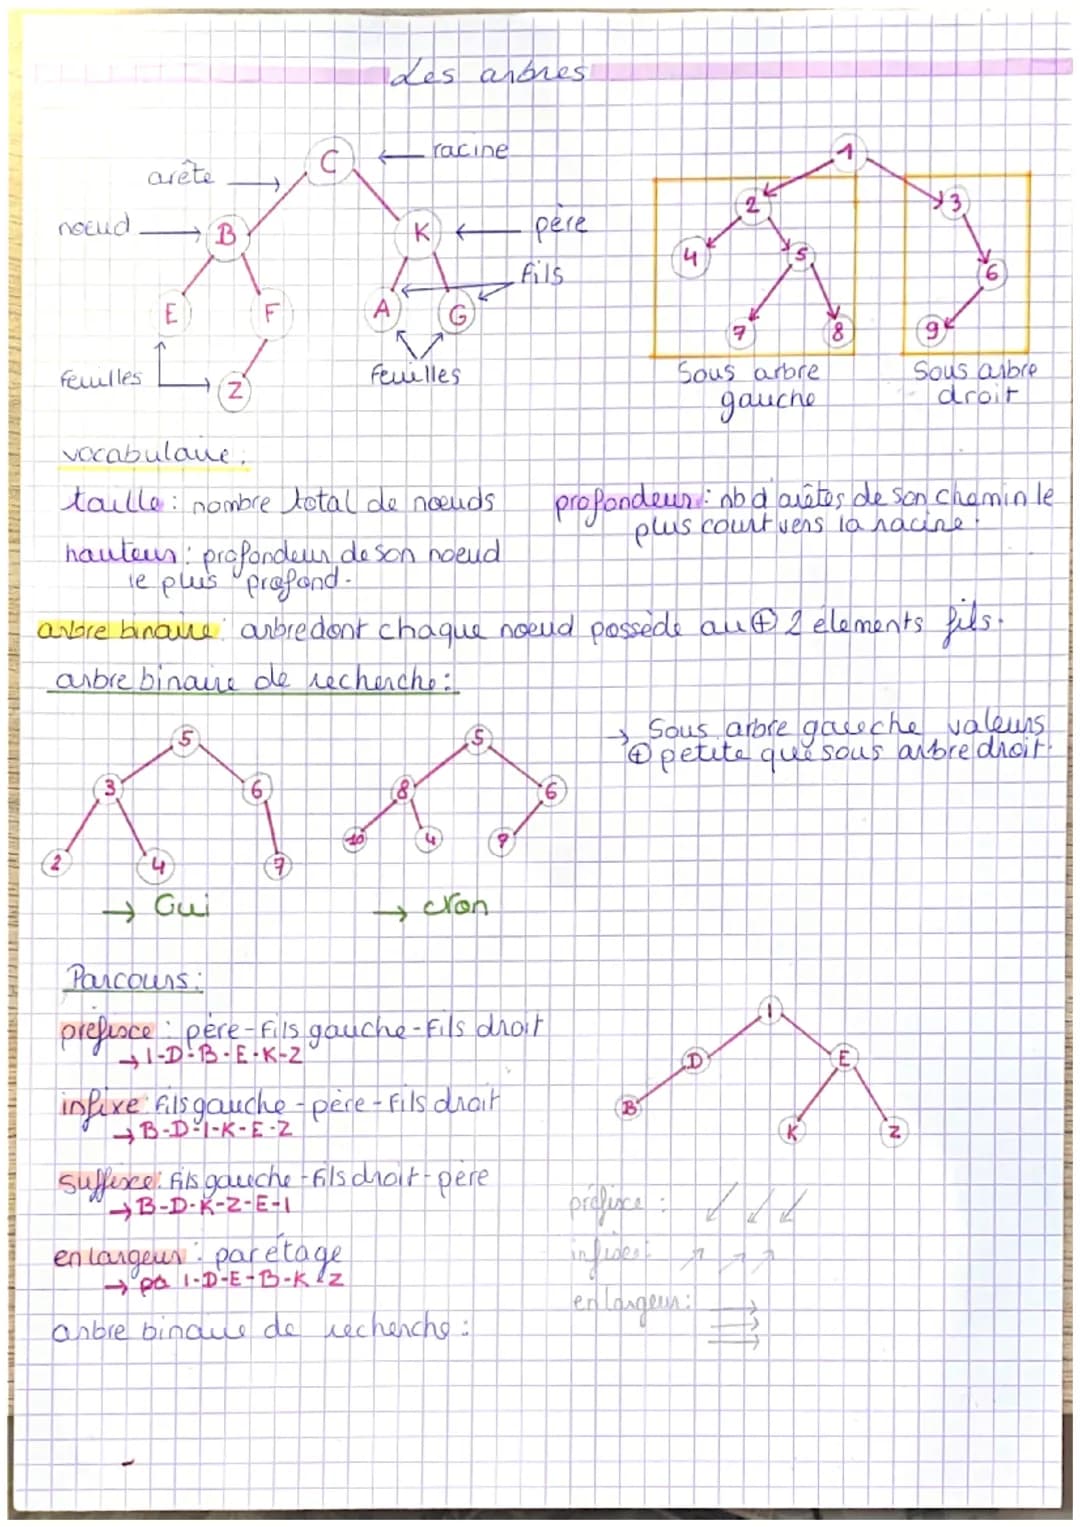 Les arbres
C
racine
arête
noeud
B
K
père
fils
E
F
A
G
feuilles
Z
feuilles
1
2
3
4
5
6
7
8
9
Sous arbre
gauche
Sous arbre
droit
vocabulaire :
taille : nombre total de nœuds
profondeur : nb d'arêtes de son chemin le
plus court vers la racine.
hauteur : profondeur de son noeud
le plus profond.
arbre binaire : arbre dont chaque noeud possède au ⊕ 2 élements fils.
arbre binaire de recherche :
5
3
6
2
4
7
5
8
6
10
4
9
→ Sous arbre gauche valeurs
⊕ petite que sous arbre droit.
→ Oui
→ Non
Parcours :
préfixe : père-fils gauche-fils droit
→ I-D-B-E-K-Z
infixe : fils gauche - père - fils droit
→ B-D-I-K-E-Z
suffixe : fils gauche - fils droit - père
→ B-D-K-Z-E-I
en largeur : par étage
→ pa I-D-E-B-K-Z
I
D
E
B
K
Z
préfixe : ↙ ↙ ↙
infixe : ↗ ↗ ↗
en largeur : → → →
arbre binaire de recherche :